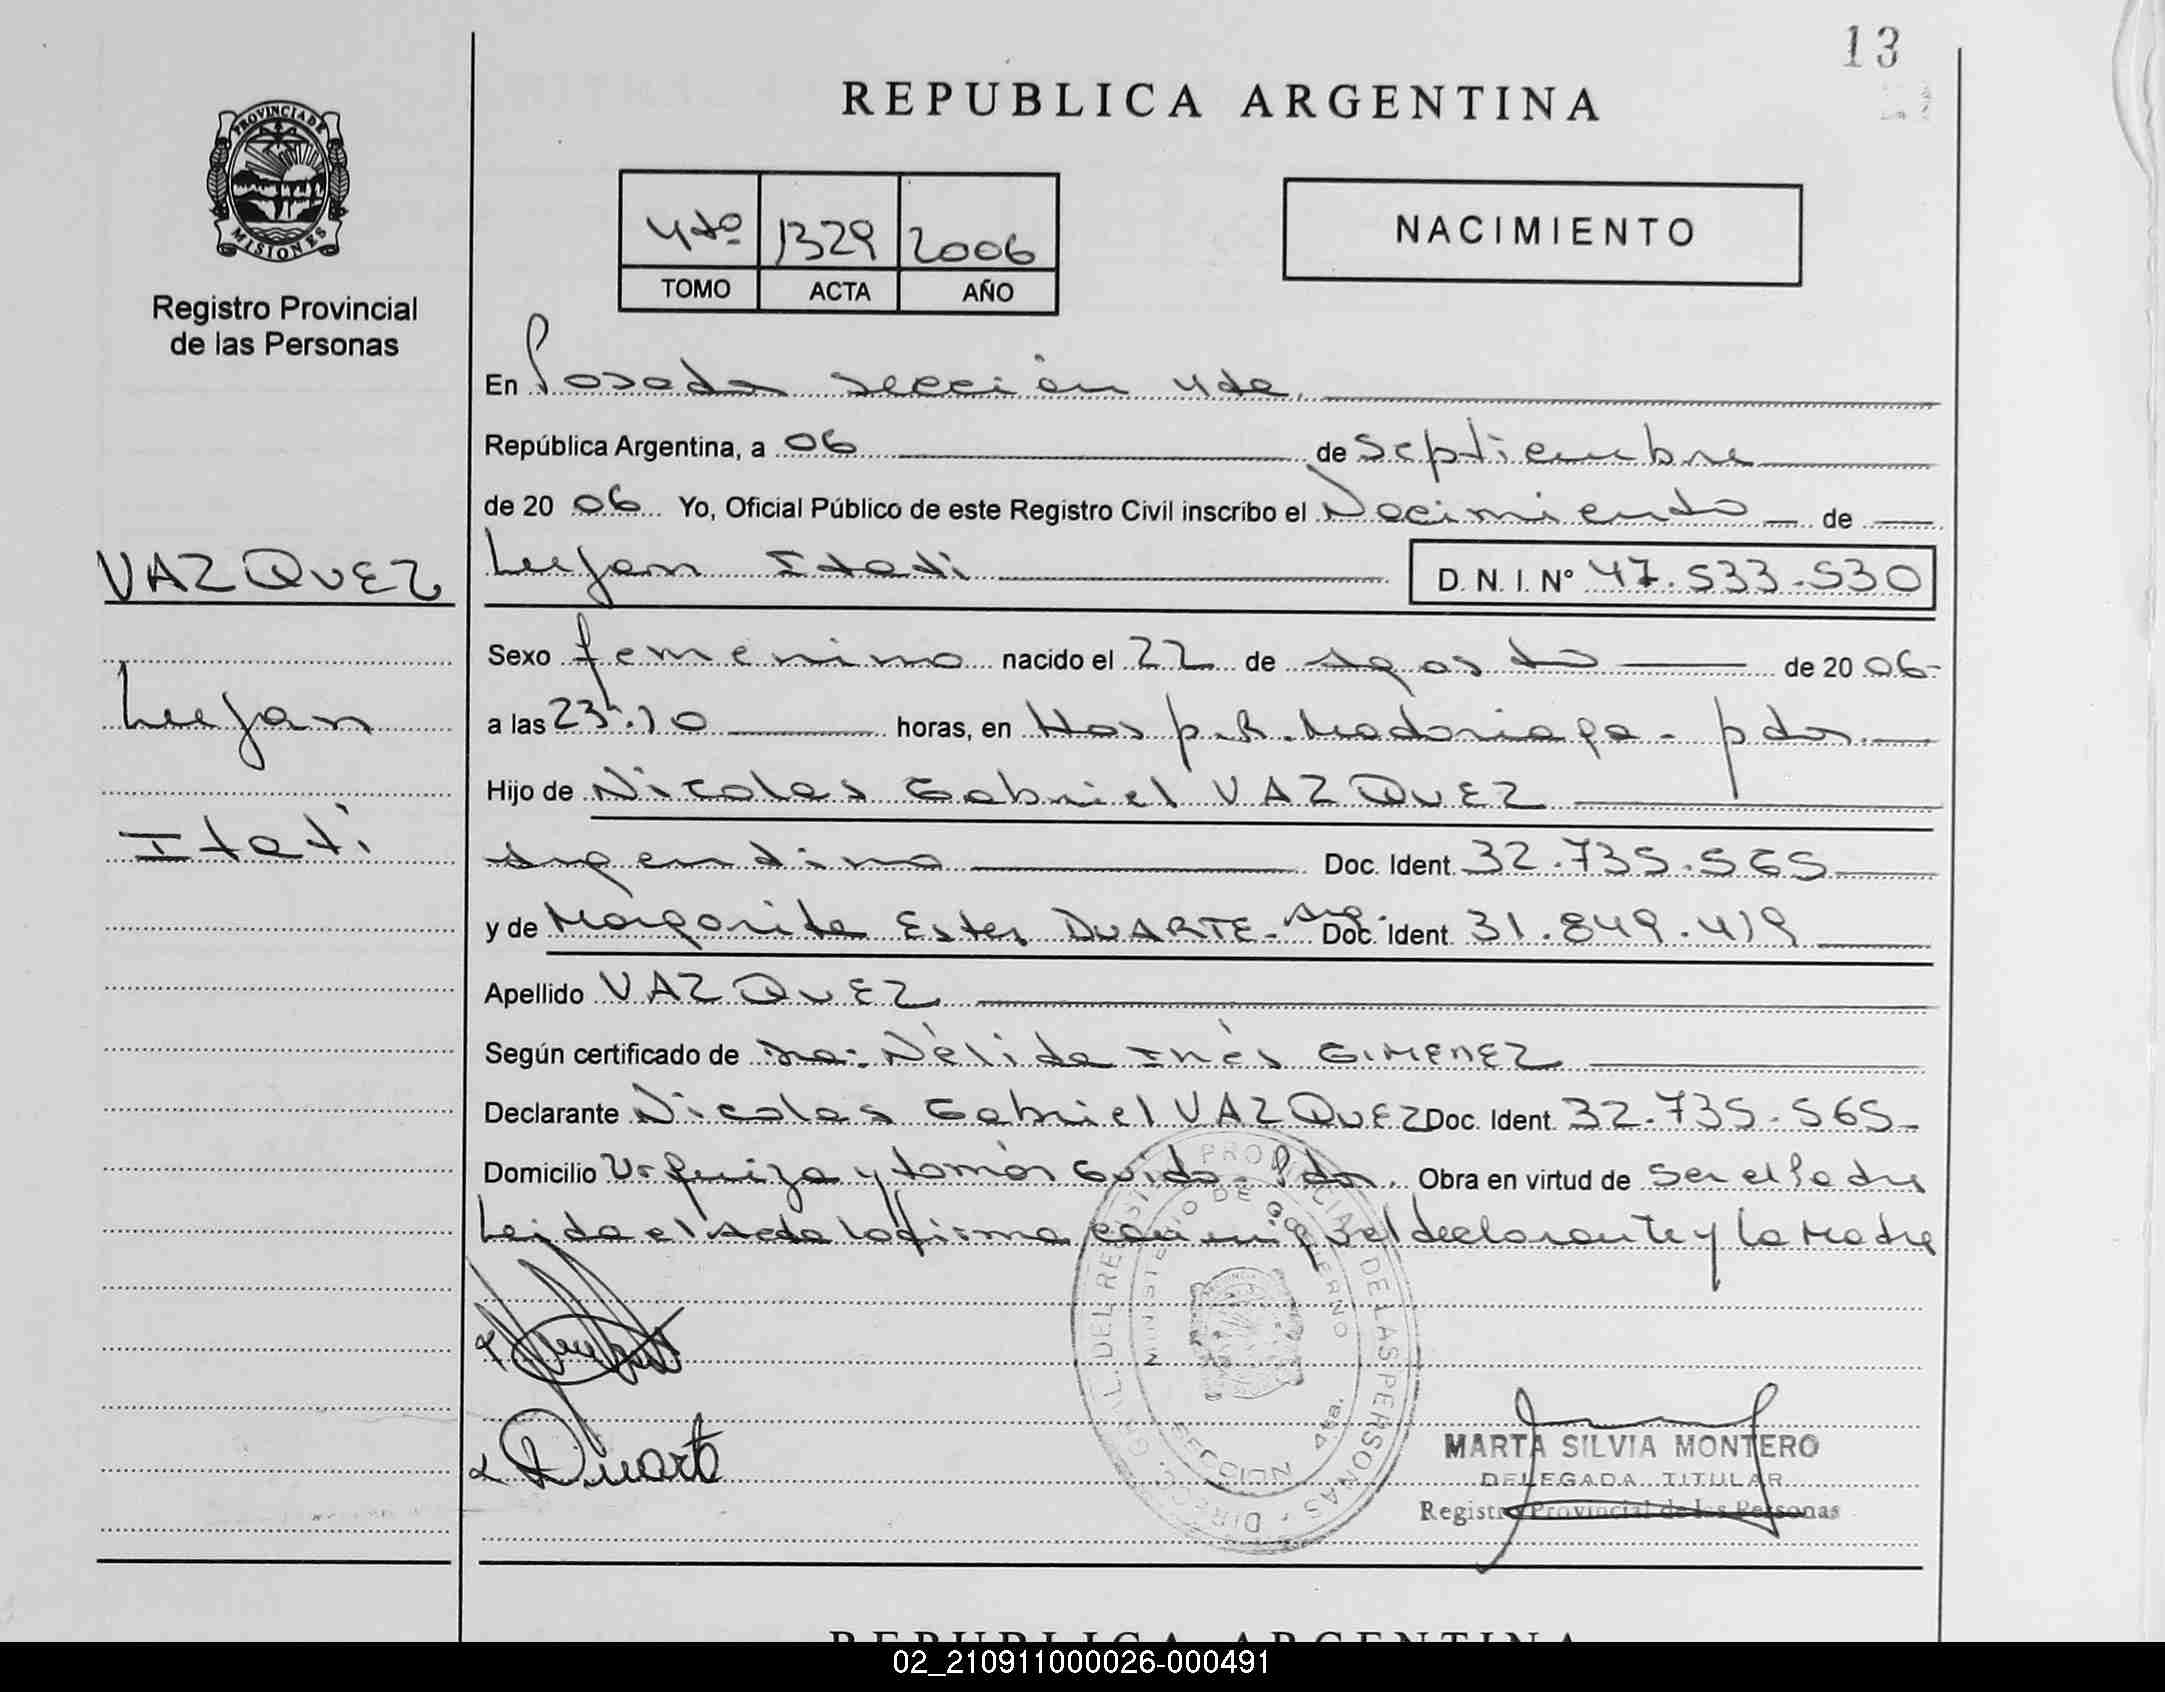 13
REPUBLICA ARGENTINA
PROVINCIA DE
MISIONES
Registro Provincial
de las Personas
4to 1329 2006
TOMO ACTA AÑO
NACIMIENTO
En Posadas sección 4ta.
República Argentina, a 06 de Septiembre
de 20 06 Yo, Oficial Público de este Registro Civil inscribo el Nacimiento de
VAZQUEZ
Lujan Itatí
D. N. I. N° 47.533.530
Sexo femenino nacido el 22 de Agosto de 20 06
Lujan
a las 23h.10 horas, en Hosp.R.Madariaga - pdas.
Hijo de Nicolas Gabriel VAZQUEZ
Itatí
Argentino Doc. Ident. 32.735.565
y de Margarita Ester DUARTE - Arg. Doc. Ident. 31.849.419
Apellido VAZQUEZ
Según certificado de Nélida Inés GIMENEZ
Declarante Nicolas Gabriel VAZQUEZ Doc. Ident. 32.735.565
Domicilio Urquiza y tomás Guido - Pdas. Obra en virtud de ser el Padre
Leida el Acta la firma conmigo el declarante y la Madre
DIRECC. GRAL. DEL REGISTRO PROVINCIAL DE LAS PERSONAS
MINISTERIO DE GOBIERNO
SECCION 4ta.
Duarte
MARTA SILVIA MONTERO
DELEGADA TITULAR
Registro Provincial de las Personas
REPUBLICA ARGENTINA
02_210911000026-000491